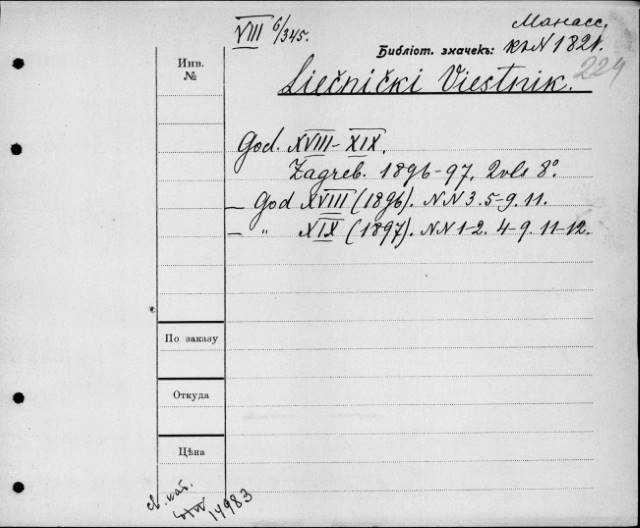 VIII 6/345.
Манасс.
Библіот. значекъ: къ N 1821.
224
Инв.
№
Liečnički Viestnik.
God. XVIII-XIX.
Zagreb. 1896-97. 2vls 8°.
— God XVIII (1896). NN 3. 5-9. 11.
— " XIX (1897). NN 1-2. 4-9. 11-12.
По заказу
Откуда
Цѣна
св. кат.
14983